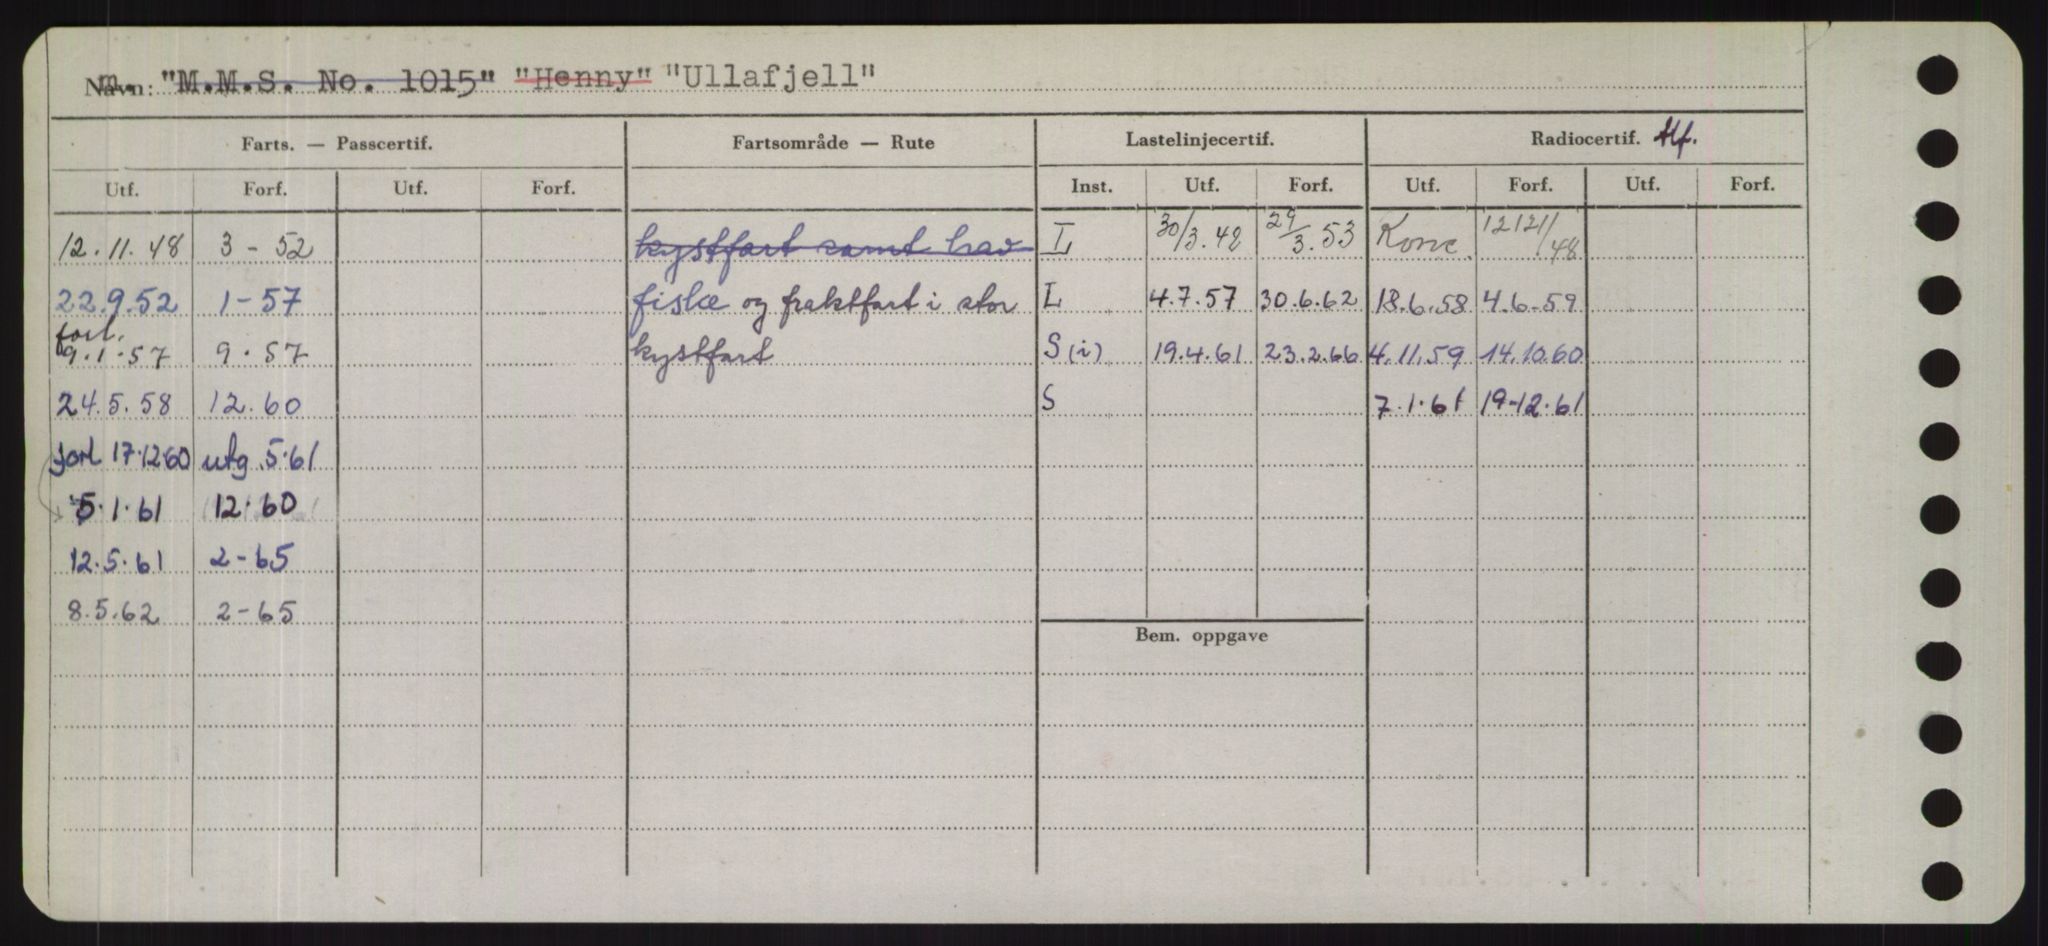 Navn: m. "M.M.S. No. 1015" "Henny" "Ullafjell"
Farts. — Passcertif. Fartsområde — Rute Lastelinjecertif. Radiocertif. tlf.
Utf. Forf. Utf. Forf. Inst. Utf. Forf. Utf. Forf. Utf. Forf.
12.11.48 3-52 kystfart samt hav L 30/3.48 29/3.53 Konc. 12/21/48
22.9.52 1-57 fiske og fraktfart i stor L 4.7.57 30.6.62 18.6.58 4.6-59
forl.
9.1.57 9.57 kystfart S(i) 19.4.61 23.2.66 4.11.59 14.10.60
24.5.58 12.60 S 7.1.61 19-12.61
forl 17.12.60 utg .5.61
5.1.61 12.60
12.5.61 2-65
8.5.62 2-65
Bem. oppgave